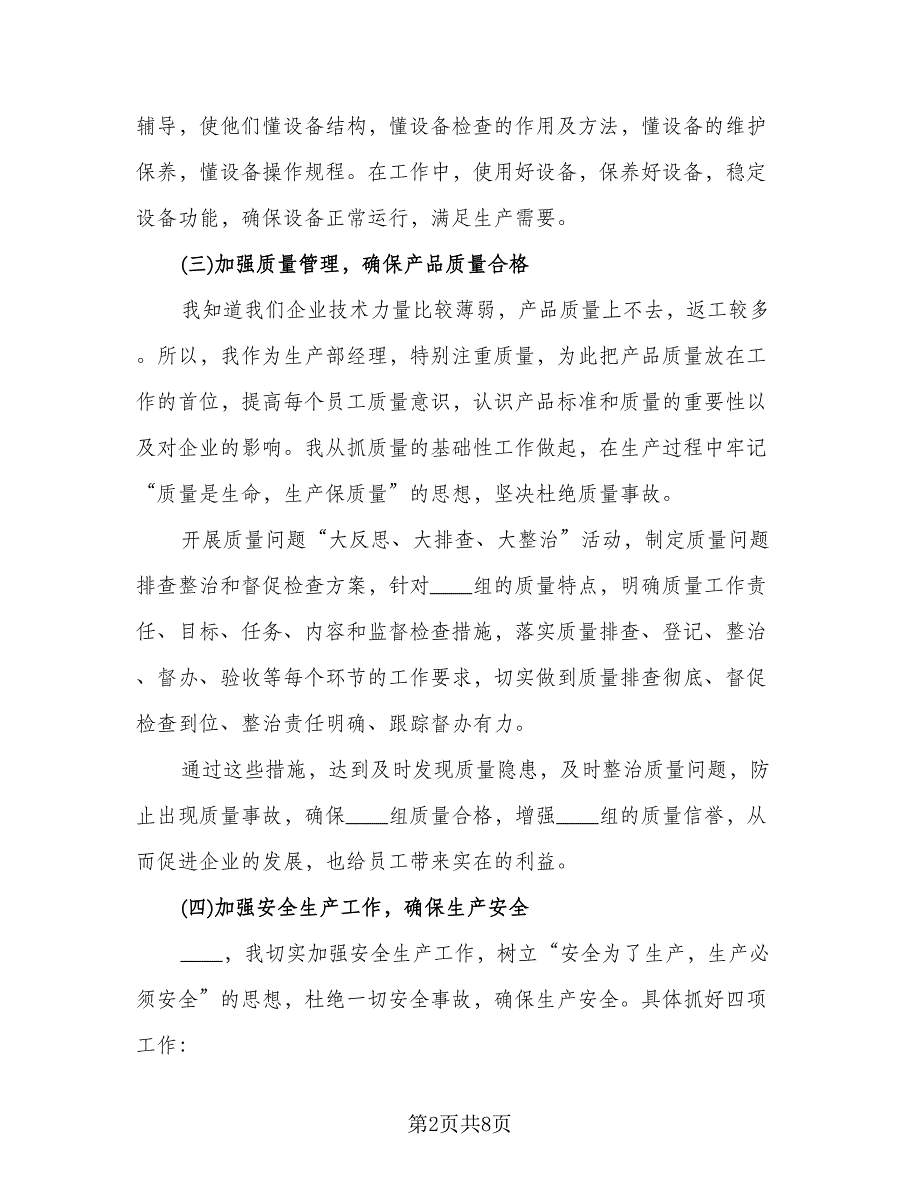 辅导，使他们懂设备结构，懂设备检查的作用及方法，懂设备的维护
保养，懂设备操作规程。在工作中，使用好设备，保养好设备，稳定
设备功能，确保设备正常运行，满足生产需要。
(三)加强质量管理，确保产品质量合格
我知道我们企业技术力量比较薄弱，产品质量上不去，返工较多
。所以，我作为生产部经理，特别注重质量，为此把产品质量放在工
作的首位，提高每个员工质量意识，认识产品标准和质量的重要性以
及对企业的影响。我从抓质量的基础性工作做起，在生产过程中牢记
“质量是生命，生产保质量”的思想，坚决杜绝质量事故。
开展质量问题“大反思、大排查、大整治”活动，制定质量问题
排查整治和督促检查方案，针对____组的质量特点，明确质量工作责
任、目标、任务、内容和监督检查措施，落实质量排查、登记、整治
、督办、验收等每个环节的工作要求，切实做到质量排查彻底、督促
检查到位、整治责任明确、跟踪督办有力。
通过这些措施，达到及时发现质量隐患，及时整治质量问题，防
止出现质量事故，确保____组质量合格，增强____组的质量信誉，从
而促进企业的发展，也给员工带来实在的利益。
(四)加强安全生产工作，确保生产安全
____，我切实加强安全生产工作，树立“安全为了生产，生产必
须安全”的思想，杜绝一切安全事故，确保生产安全。具体抓好四项
工作：
第2页共8页